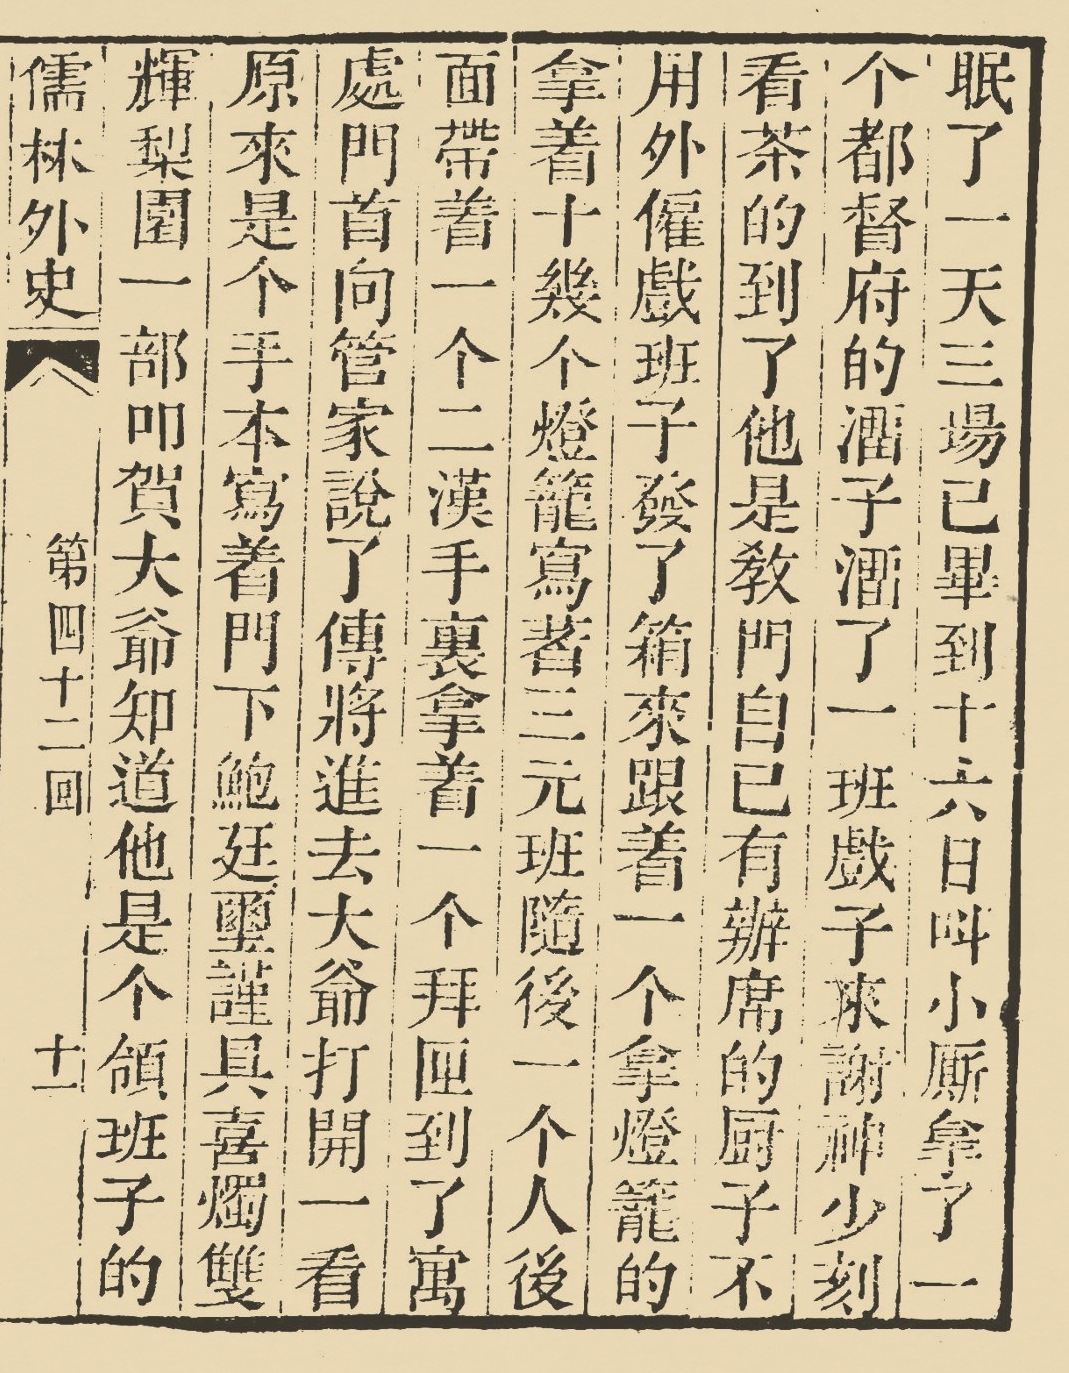 眠了一天三場已畢到十六日叫小厮拿了一
个都督府的溜子溜了一班戲子來謝神少刻
看茶的到了他是教門自已有辦席的厨子不
用外僱戲班子發了箱來跟着一个拿燈籠的
拿着十幾个燈籠寫着三元班隨後一个人後
面帶着一个二漢手裏拿着一个拜匣到了寓
處門首向管家說了傳將進去大爺打開一看
原來是个手本寫着門下鮑廷璽謹具喜燭雙
輝梨園一部叩賀大爺知道他是个領班子的
儒林外史 第四十二回 十一